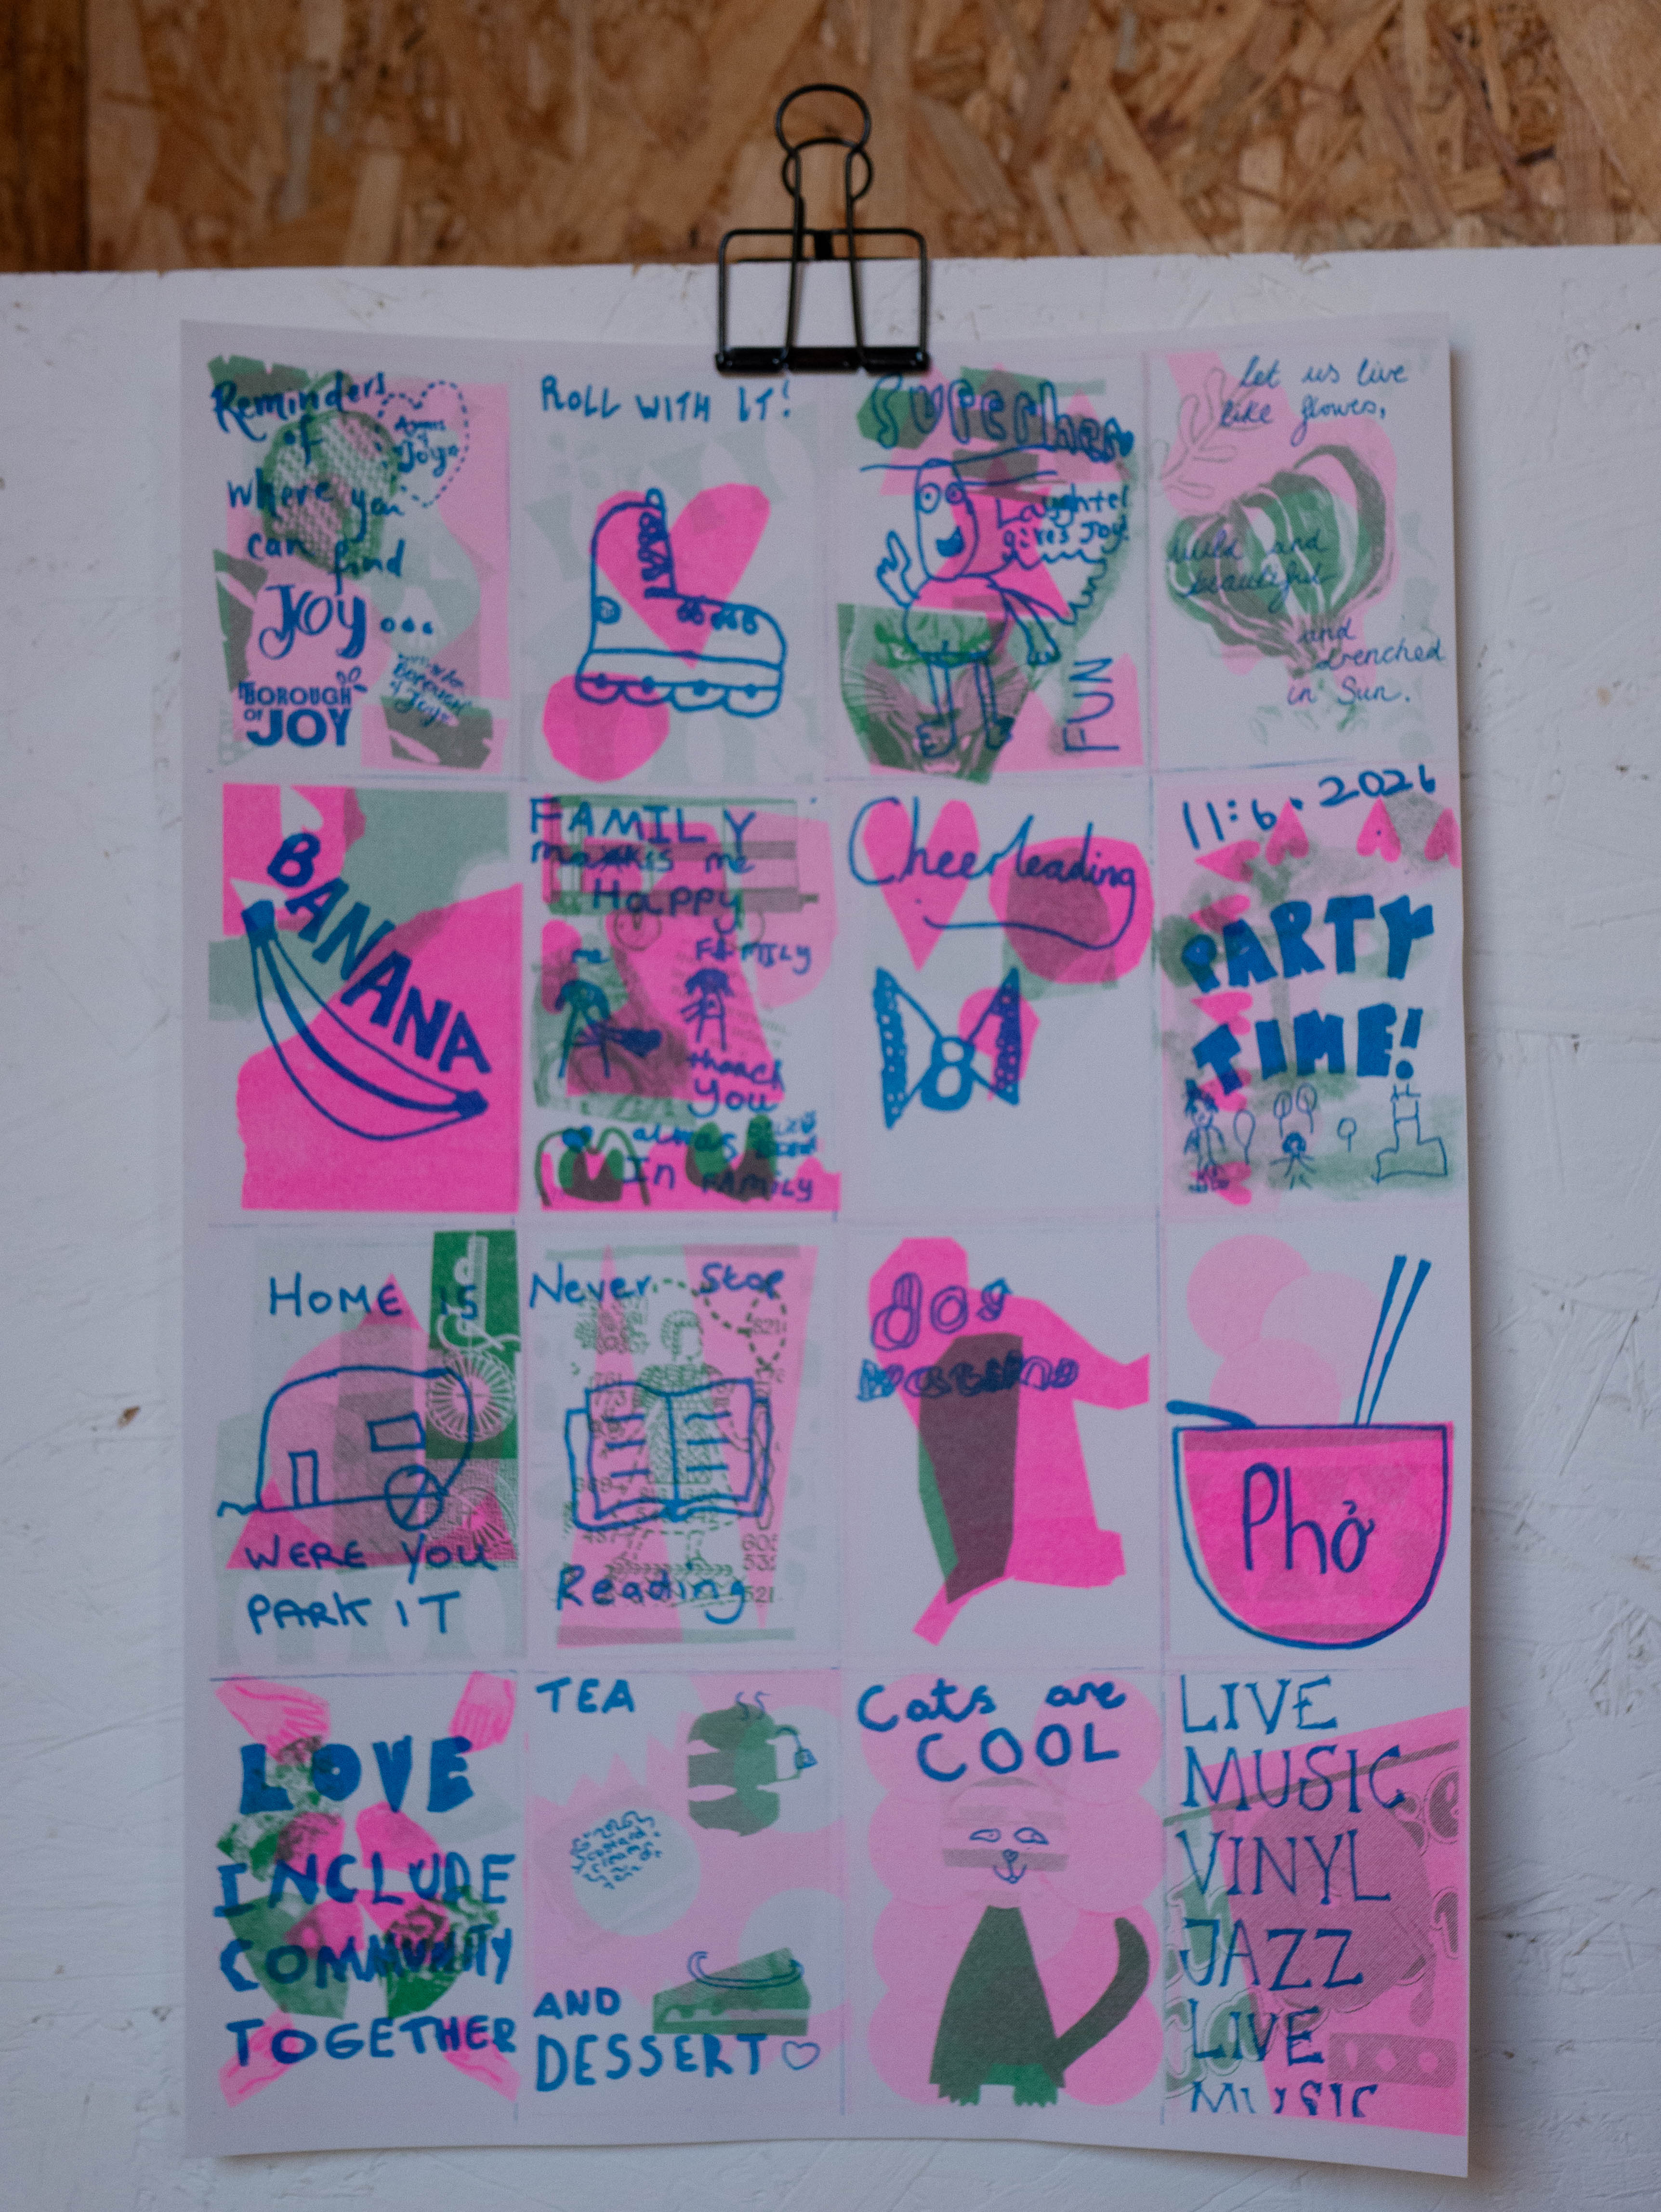 Reminders
of
where you
can find
JOY...
BOROUGH
OF
JOY
Joy
ROLL WITH IT!
Superhero
Laughter
gives Joy!
FUN
let us live
like flowers,
wild and
beautiful
and
drenched
in Sun.
BANANA
FAMILY
me
Happy
me FAMILY
You
In FAMILY
Cheerleading
11:6.2026
PARTY
TIME!
HOME IS
WERE YOU
PARK IT
Never Stop
Reading
dog
Phở
LOVE
INCLUDE
COMMUNITY
TOGETHER
TEA
custard
creams
AND
DESSERT
Cats are
COOL
LIVE
MUSIC
VINYL
JAZZ
LIVE
MUSIC